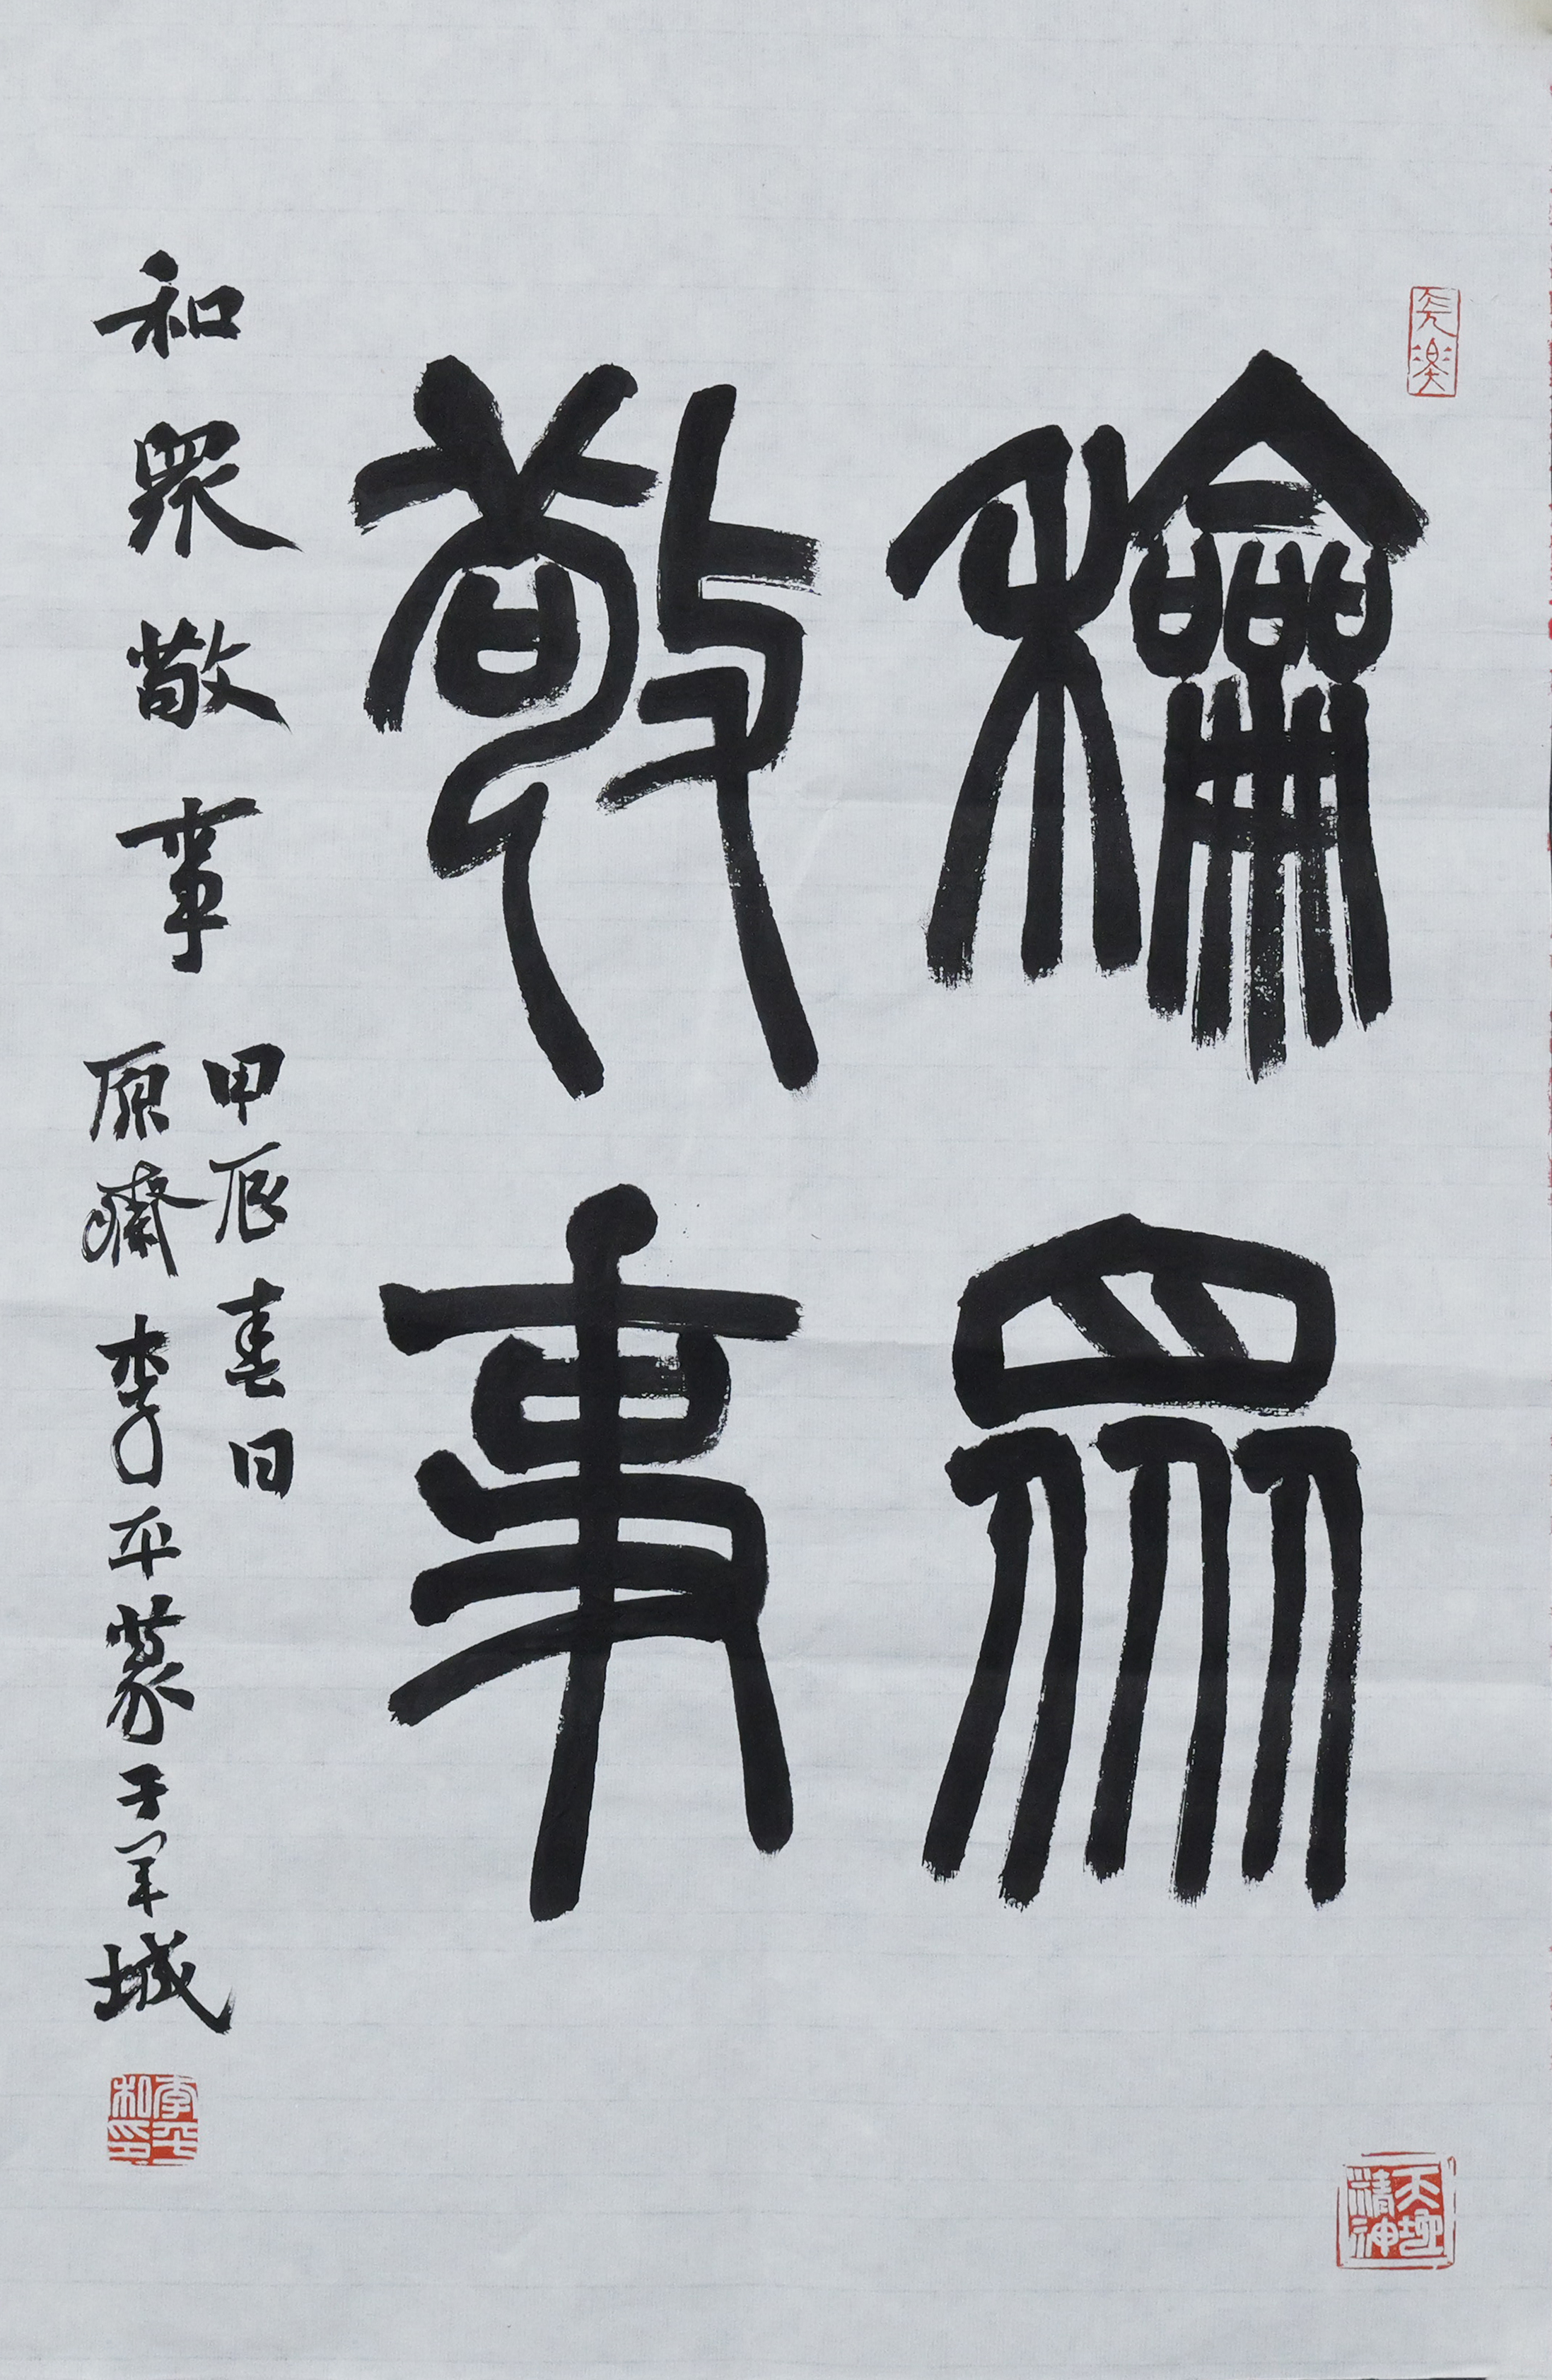 龢眾
敬事
和眾敬事
甲辰春日
原齋李平篆于羊城
李平
私印
天地
精神